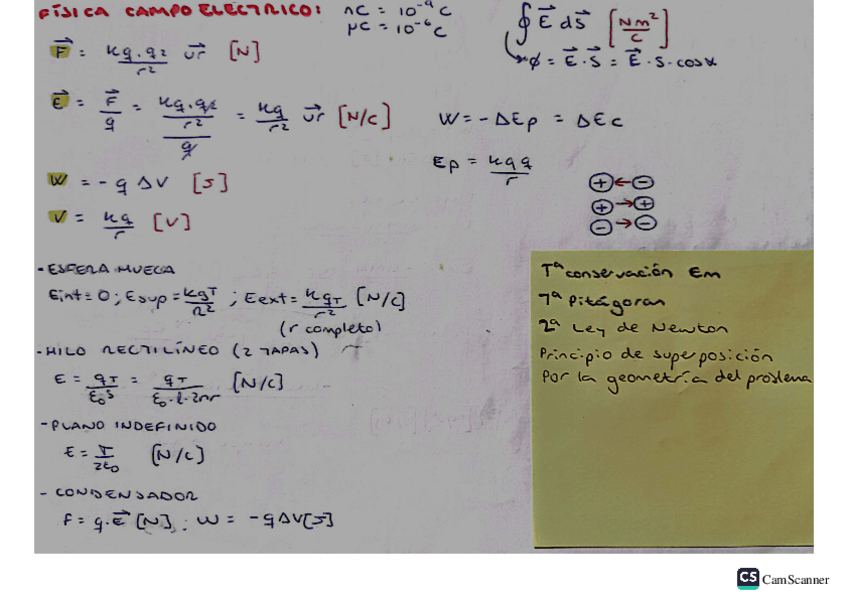 FÍSICA CAMPO ELECTRICO:
nC = 10⁻⁹ C
μC = 10⁻⁶ C
∮ E⃗ dS⃗ [Nm²/C]
ϕ = E⃗ · S⃗ = E⃗ · S · cos α
F⃗ = kq·q₂/r² ur⃗ [N]
E⃗ = F⃗/q = (kq·q₂/r²)/q = kq/r² ur⃗ [N/C]
W = -ΔEp = ΔEc
Ep = kqq/r
W = -q ΔV [J]
V = kq/r [V]
+ ← -
+ → +
- → -
- ESFERA HUECA
Eint = 0 ; Esup = kqT/R² ; Eext = kqT/r² [N/C]
(r completo)
- HILO RECTILÍNEO (2 TAPAS)
E = qT/ε₀S = qT/ε₀·l·2πr [N/C]
- PLANO INDEFINIDO
E = T/2ε₀ [N/C]
- CONDENSADOR
F = q·E⃗ [N] ; W = -qΔV [J]
Tª conservación Em
Tª Pitágoras
2ª Ley de Newton
Principio de superposición
Por la geometría del problema
CS CamScanner